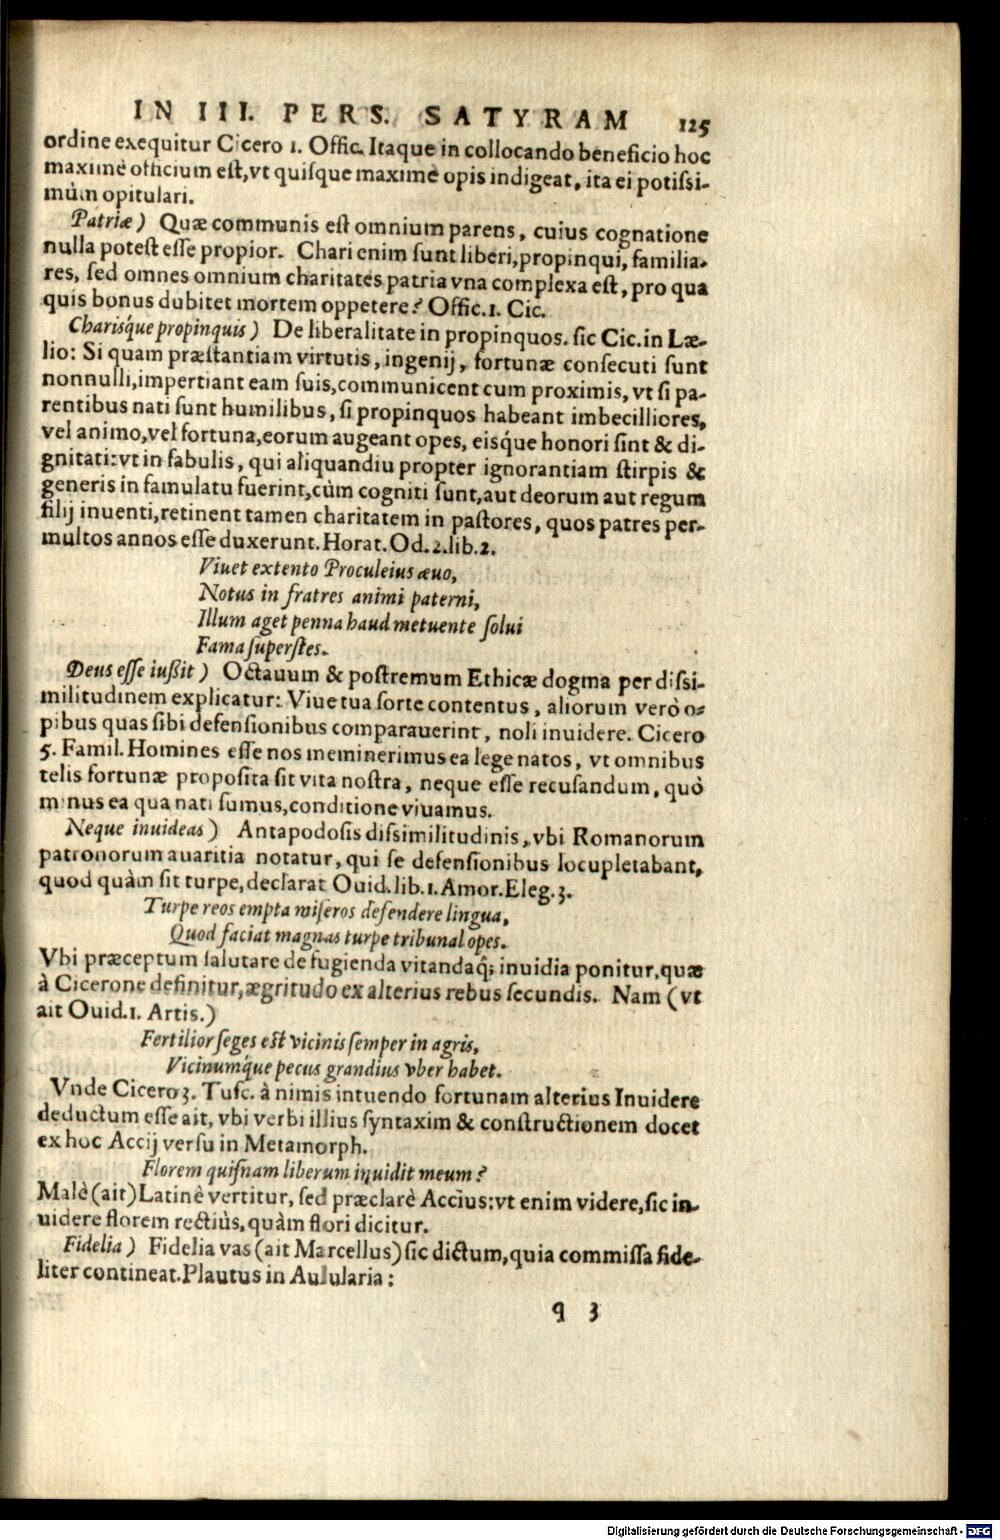 IN III. PERS. SATYRAM 125
ordine exequitur Cicero 1. Offic. Itaque in collocando beneficio hoc
maximè officium est, vt quisque maximè opis indigeat, ita ei potissi-
mùm opitulari.
Patriæ) Quæ communis est omnium parens, cuius cognatione
nulla potest esse propior. Chari enim sunt liberi, propinqui, familia-
res, sed omnes omnium charitates patria vna complexa est, pro qua
quis bonus dubitet mortem oppetere? Offic. 1. Cic.
Charisq́ue propinquis) De liberalitate in propinquos. sic Cic. in Læ-
lio: Si quam præstantiam virtutis, ingenij, fortunæ consecuti sunt
nonnulli, impertiant eam suis, communicent cum proximis, vt si pa-
rentibus nati sunt humilibus, si propinquos habeant imbecilliores,
vel animo, vel fortuna, eorum augeant opes, eisq́ue honori sint & di-
gnitati: vt in fabulis, qui aliquandiu propter ignorantiam stirpis &
generis in famulatu fuerint, cùm cogniti sunt, aut deorum aut regum
filij inuenti, retinent tamen charitatem in pastores, quos patres per-
multos annos esse duxerunt. Horat. Od. 2. lib. 2.
Viuet extento Proculeius æuo,
Notus in fratres animi paterni,
Illum aget penna haud metuente solui
Fama superstes.
Deus esse iußit) Octauum & postremum Ethicæ dogma per dissi-
militudinem explicatur: Viue tua sorte contentus, aliorum verò o-
pibus quas sibi defensionibus comparauerint, noli inuidere. Cicero
5. Famil. Homines esse nos meminerimus ea lege natos, vt omnibus
telis fortunæ proposita sit vita nostra, neque esse recusandum, quò
minus ea qua nati sumus, conditione viuamus.
Neque inuideas) Antapodosis dissimilitudinis, vbi Romanorum
patronorum auaritia notatur, qui se defensionibus locupletabant,
quod quàm sit turpe, declarat Ouid. lib. 1. Amor. Eleg. 3.
Turpe reos empta miseros defendere lingua,
Quod faciat magnas turpe tribunal opes.
Vbi præceptum salutare de fugienda vitandaq́; inuidia ponitur, quæ
à Cicerone definitur, ægritudo ex alterius rebus secundis. Nam (vt
ait Ouid. 1. Artis.)
Fertilior seges est vicinis semper in agris,
Vicinumq́ue pecus grandius vber habet.
Vnde Cicero 3. Tusc. à nimis intuendo fortunam alterius Inuidere
deductum esse ait, vbi verbi illius syntaxim & constructionem docet
ex hoc Accij versu in Metamorph.
Florem quisnam liberum inuidit meum?
Malè (ait) Latinè vertitur, sed præclarè Accius: vt enim videre, sic in-
uidere florem rectiùs, quàm flori dicitur.
Fidelia) Fidelia vas (ait Marcellus) sic dictum, quia commissa fide-
liter contineat. Plautus in Aulularia:
q 3
Digitalisierung gefördert durch die Deutsche Forschungsgemeinschaft - DFG